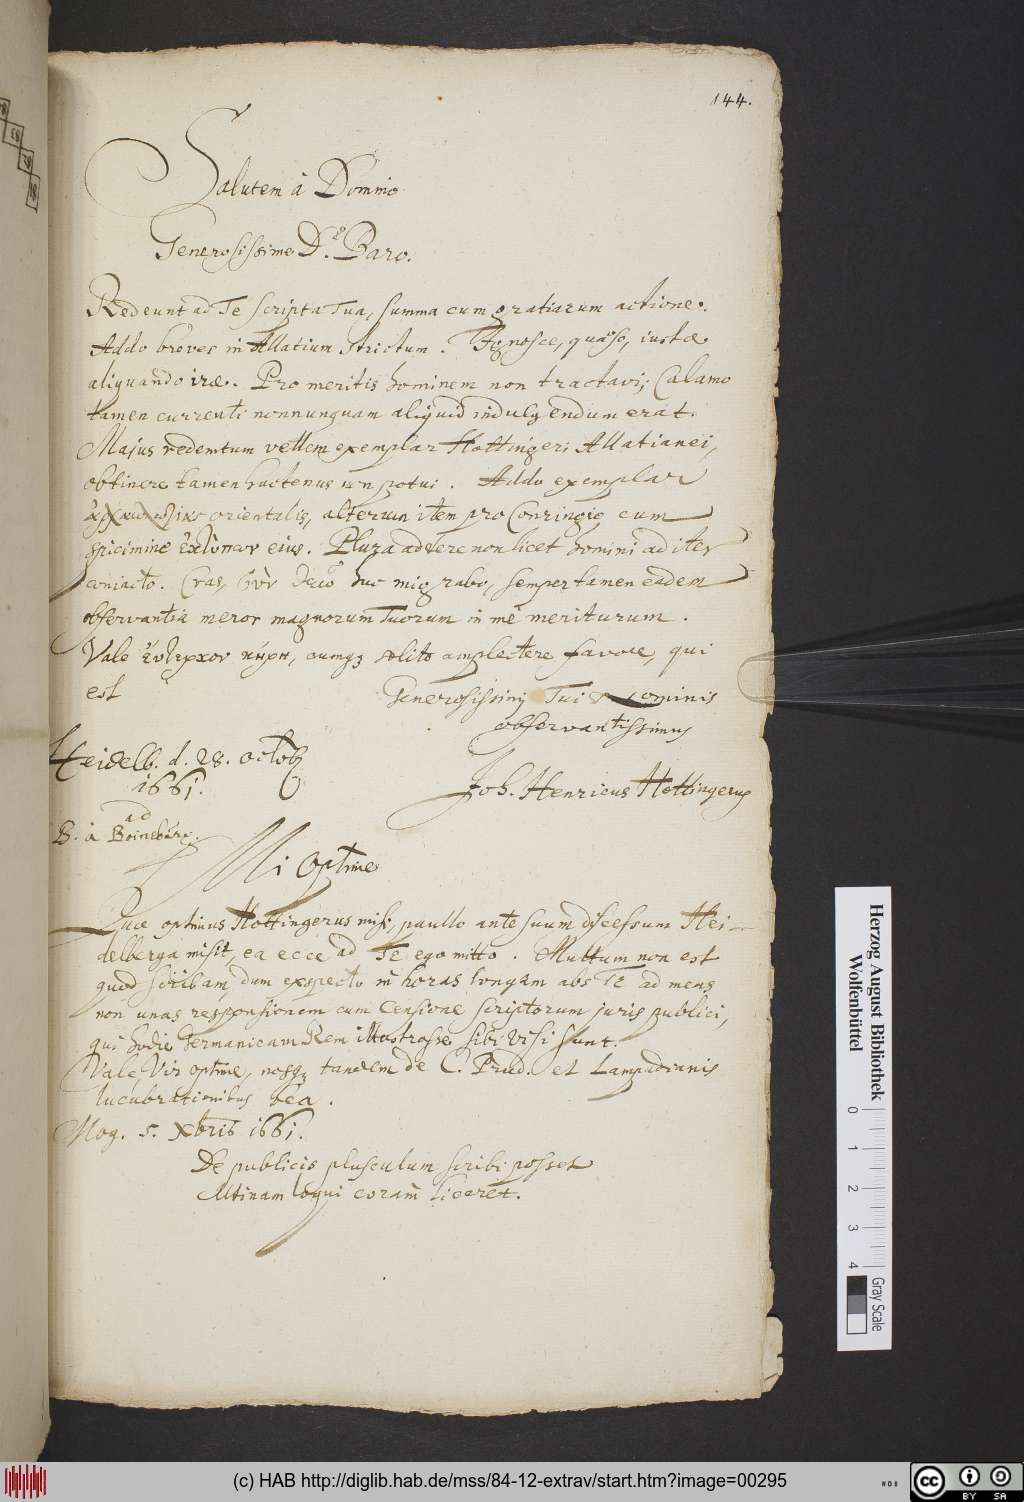 144.
Salutem à Domino
Generosissime D.ne Baro.
Redeunt ad Te scripta Tua, summa cum gratiarum actione.
Addo breves in Allatium strictum. Ignosce, quæso, iustæ
aliquando iræ. Pro meritis hominem non tractavi; Calamo
tamen currenti nonnunquam aliquid indulgendum erat.
Majus redemtum vellem exemplar Hottingeri Allatianei,
obtinere tamen hactenus non potui. Addo exemplar
orientalis, alterum item pro Conringio cum
specimine eius. Plura addere non licet homini ad iter
coniacto. Cras, huc migrabo, semper tamen eadem
observantia meror magnorum Tuorum in me meriturum.
Vale cumq solito amplectere favore, qui
est Generosissimi Tui Nominis
observantissimus
Heidelb. d. 28. octob
1661.
Joh. Henricus Hottingerus
ad
B. à Boineburg.
Mi Optime
Quæ optimus Hottingerus mihi, paullo ante suum discessum Hei-
delberga misit, ea ecce ad Te ego mitto. Multum non est
quod scribam, dum exspecto in horas longam abs Te ad meas
non unas responsionem cum Censione scriptorum juris publici,
qui hodie Germanicam Rem illustrasse sibi visi sunt.
Vale Vir optime, nosq tandem de C. Prud. et Lampadianis
lucubrationibus bea.
Mog. 5. Xbris 1661.
De publicis plusculum scribi posset
Utinam loqui coram liceret.
Herzog August Bibliothek
Wolfenbüttel
0 1 2 3 4
Gray Scale
(c) HAB http://diglib.hab.de/mss/84-12-extrav/start.htm?image=00295
cc BY SA